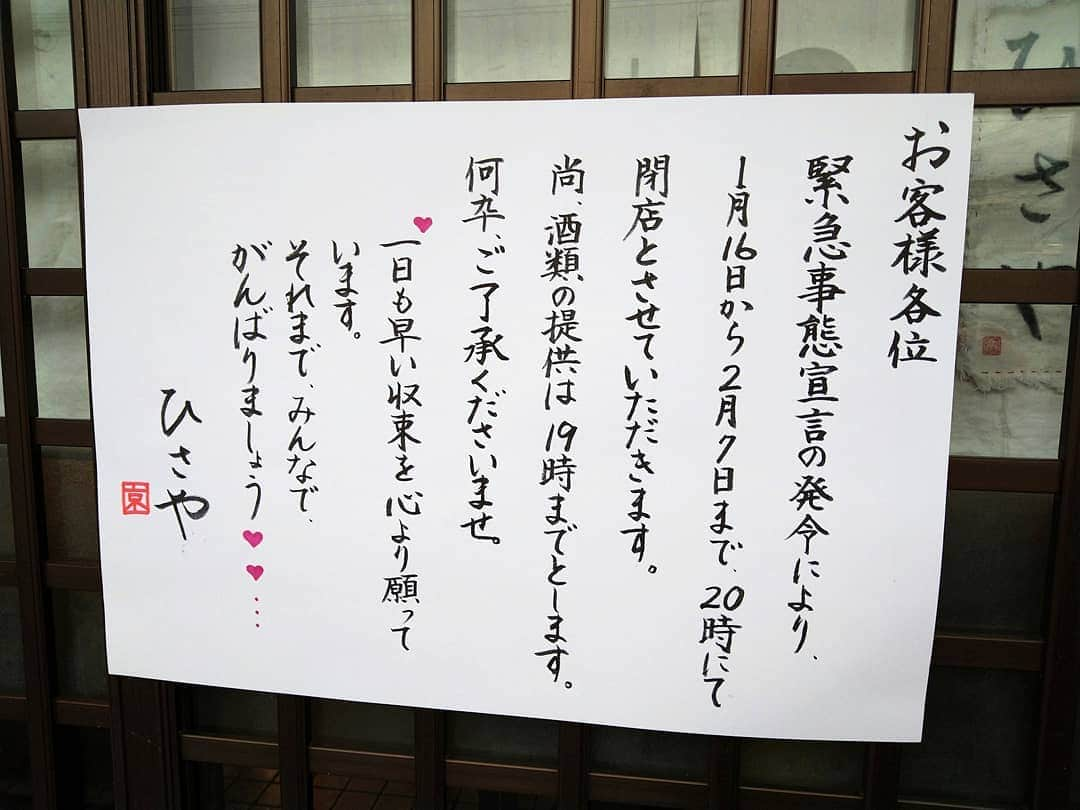 お客様各位
緊急事態宣言の発令により、
1月16日から2月7日まで、20時にて
閉店とさせていただきます。
尚、酒類の提供は19時までとします。
何卒、ご了承くださいませ。
♥一日も早い収束を心より願って
います。
それまで、みんなで、
がんばりましょう♥♥…
ひさや
京
ひさや